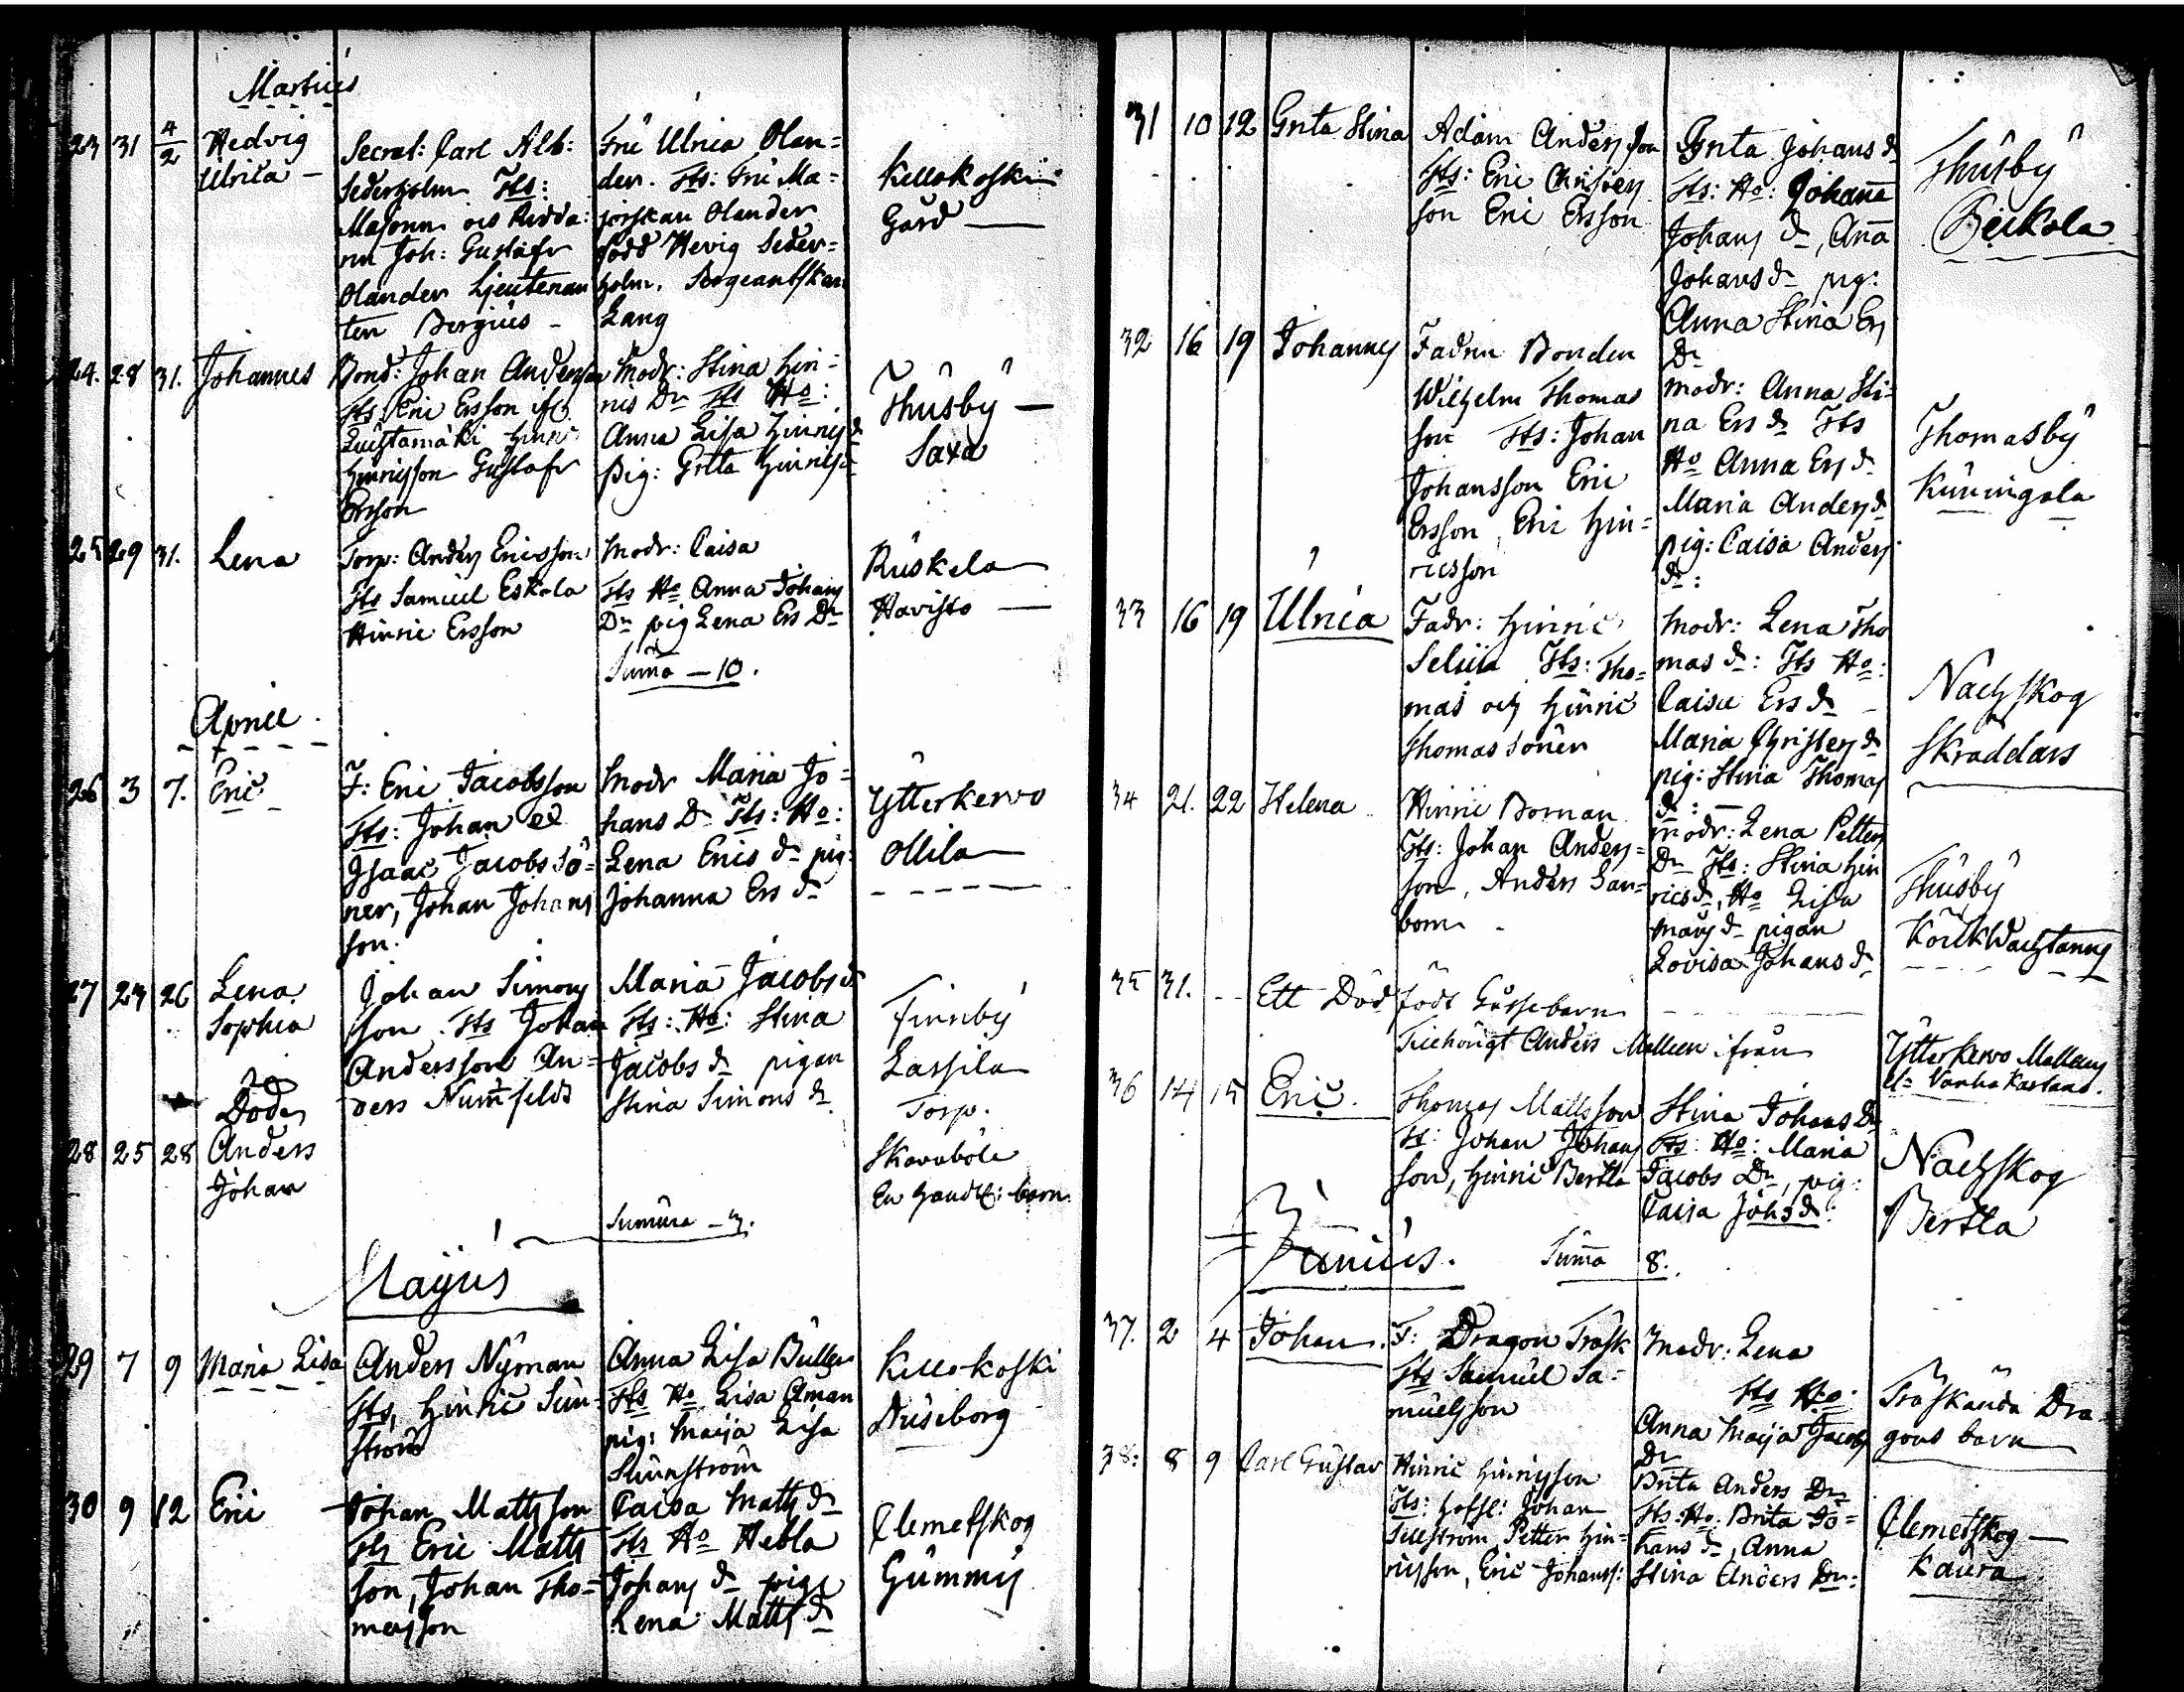 Martius
23 31 4/2 Hedvig Ulrica —
Secrat: Carl Alb:
Sederholm Tts:
Majoren och Ridda:
ren Joh: Gustafr
Olander Ljeutenan
ten Bergius —
Fru Ulrica Olan=
der. Tts: Fru Ma=
jorskan Olander
född Hevig Seder=
holm, Sergeantskan
Lang
Kellokoski
Gård —
24. 28 31. Johannes
Bond: Johan Andersson
Tts Eric Ersson
Hinricsson Gustafr
Ersson
Modr: Stina Hin=
rics Dr Tts Ho:
Anna Lisa Hinrics dr
pig: Greta Hinrics dr
Thusby —
Saxa
25 29 31. Lena
Torp: Anders Ericsson
Tts Samuel Eskola
Hinric Ersson
Modr: Caisa
Tts Ho Anna Johans
Dr pig Lena Ers Dr
Suma — 10.
Ruskela
Havisto —
Aprill.
26 3 7. Eric
F: Eric Jacobsson
Tts: Johan ed
Isaac Jacobs sö=
ner, Johan Johans
son.
Modr Maria Jo=
hans Dr Tts: Ho:
Lena Erics dr pig:
Johanna Ers dr
Ytterkervo
Ollila
27 23 26 Lena
Sophia
Johan Simons
son Tts Johan
Andersson An=
ders Numfeldt
Maria Jacobs dr
Tts: Ho: Stina
Jacobs dr pigan
Stina Simons dr
Finnby
Lassila
Torp.
Döde
28 25 28 Anders
Johan
Skavaböle
Summa — 3.
Majus
29 7 9 Maria Lisa
Anders Nyman
Tts, Hinric Sun=
ström
Anna Lisa Buller
Tts Ho Lisa Aman
pig: Maija Lisa
Sunnström
Kellokoski
Duseborg
30 9 12 Eric
Johan Mattsson
Tts Eric Matts
son, Johan Tho=
masson
Caisa Matts dr
Tts Ho Hebla
Johans dr pig:
Lena Matts dr
Clemetskog
Gummus
31 10 12 Greta Stina
Adam Andersson
Tts: Eric Christers
son Eric Ersson
Greta Johans dr
Tts: Ho: Johana
Johans dr, Ana
Johans dr pig:
Anna Stina Ers
Dr
Thusby
Beckola
32 16 19 Johannes
Fadren Bonden
Wilhelm Thomas
son Tts: Johan
Johansson Eric
Ersson, Eric Hin=
ricsson
Modr: Anna Sti=
na Ers dr Tts
Ho Anna Ers dr
Maria Anders dr
pig: Caisa Anders
dr:
Thomasby
Kuningala
33 16 19 Ulrica
Fadr: Hinric
Selin Tts: Tho=
mas och Hinric
Thomas söner
Modr: Lena Tho
mas dr: Tts Ho:
Caisa Ers dr
Maria Christers dr
pig: Stina Thomas
dr: —
Nachskog
Skräddars
34 21. 22 Helena
Hinric Borman
Tts: Johan Anders=
son, Anders San=
bom.
modr: Lena Petters
Dr Tts: Stina Hin
rics dr, Ho Lisa
Mats dr pigan
Lovisa Johans dr
Thusby
35 31. -- Ett Död född Gossebarn
Anders Mallien ifrån
Ytterkervo Mallens
36 14 15 Eric.
Thomas Mattsson
Tt: Johan Johans
son, Hinric Bertta
Stina Johans Dr
Tts: Ho: Maria
Jacobs Dr, pig:
Caisa Johs dr:
Nachskog
Bertta
Junius. Suma 8.
37. 2 4 Johan.
F: Dragon Träsk
Tts Samuel Sa=
muelsson
Modr: Lena
Tts Ho:
Anna Maija Jacobs
Dr
Träskända Dra
gons barn
38: 8 9 Carl Gustav
Hinric Hinricsson
Tts: Johan
Sellström, Petter Hin=
ricsson, Eric Johanss:
Brita Anders Dr
Tts: Ho: Brita Jo=
hans dr, Anna
Stina Anders Dr:
Clemetskog —
Kaura